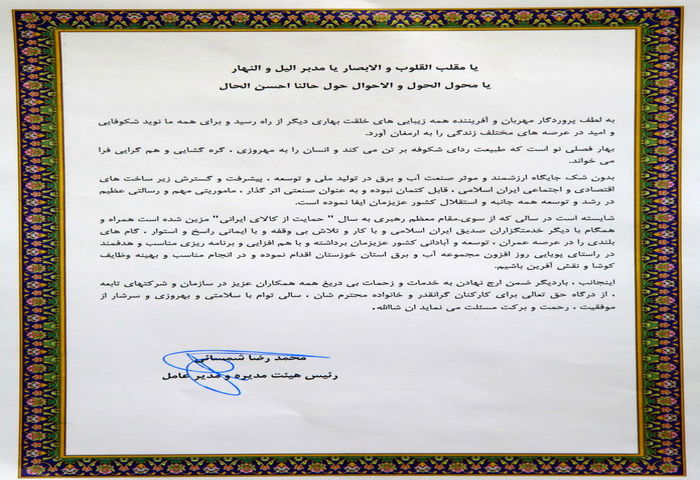 یا مقلب القلوب و الابصار یا مدبر الیل و النهار
یا محول الحول و الاحوال حول حالنا احسن الحال
به لطف پروردگار مهربان و آفریننده همه زیبایی های خلقت بهاری دیگر از راه رسید و برای همه ما نوید شکوفایی
و امید در عرصه های مختلف زندگی را به ارمغان آورد.
بهار فصلی نو است که طبیعت ردای شکوفه بر تن می کند و انسان را به مهروزی ، گره گشایی و هم گرایی فرا
می خواند.
بدون شک جایگاه ارزشمند و موثر صنعت آب و برق در تولید ملی و توسعه ، پیشرفت و گسترش زیر ساخت های
اقتصادی و اجتماعی ایران اسلامی ، قابل کتمان نبوده و به عنوان صنعتی اثر گذار ، ماموریتی مهم و رسالتی عظیم
در رشد و توسعه همه جانبه و استقلال کشور عزیزمان ایفا نموده است.
شایسته است در سالی که از سوی.مقام معظم رهبری به سال " حمایت از کالای ایرانی" مزین شده است همراه و
همگام با دیگر خدمتگزاران صدیق ایران اسلامی و با کار و تلاش بی وقفه و با ایمانی راسخ و استوار ، گام های
بلندی را در عرصه عمران ، توسعه و آبادانی کشور عزیزمان برداشته و با هم افزایی و برنامه ریزی مناسب و هدفمند
در راستای پویایی روز افزون مجموعه آب و برق استان خوزستان اقدام نموده و در انجام مناسب و بهینه وظایف
کوشا و نقش آفرین باشیم.
اینجانب ، باردیگر ضمن ارج نهادن به خدمات و زحمات بی دریغ همه همکاران عزیز در سازمان و شرکتهای تابعه
، از درگاه حق تعالی برای کارکنان گرانقدر و خانواده محترم شان ، سالی توام با سلامتی و بهروزی و سرشار از
موفقیت ، رحمت و برکت مسئلت می نماید ان شاالله.
محمد رضا شمسائی
رئیس هیئت مدیره و مدیر عامل